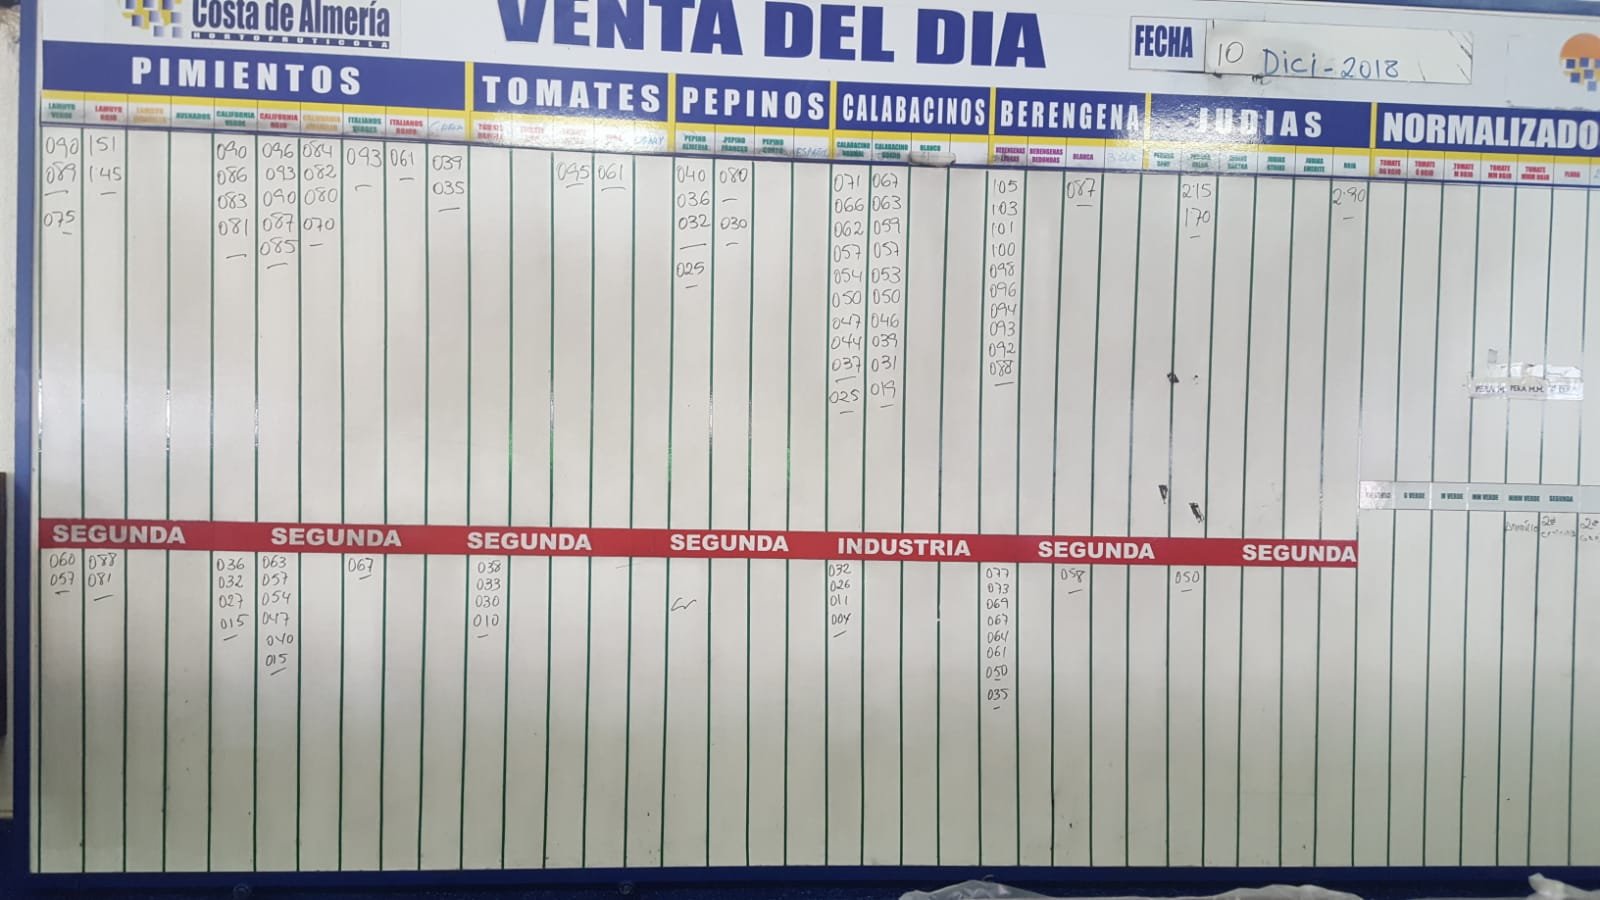 Costa de Almería
HORTOFRUTICOLA
VENTA DEL DIA
FECHA 10 Dici-2018
PIMIENTOS TOMATES PEPINOS CALABACINOS BERENGENA JUDIAS NORMALIZADO
LAMUYO VERDE
090
089
075
LAMUYO ROJO
151
145
ASURADOS
CALIFORNIA VERDE
090
086
083
081
CALIFORNIA ROJO
096
093
090
087
085
084
082
080
070
ITALIANOS VERDES
093
ITALIANOS ROJOS
061
039
035
095
061
PEPINO ALMERIA
040
036
032
025
PEPINO FRANCES
080
030
PEPINO CORTO
ESPAÑOL
CALABACINO NORMAL
071
066
062
057
054
050
047
044
037
025
CALABACINO GORDO
067
063
059
057
053
050
046
039
031
019
BLANCO
BERENGENAS LARGAS
105
103
101
100
098
096
094
093
092
088
BERENGENAS REDONDAS
BLANCA
087
215
170
ROJA
2.90
TOMATE GG ROJO
TOMATE G ROJO
TOMATE M ROJO
TOMATE MM ROJO
TOMATE MMM ROJO
PERA M.M.
G VERDE
M VERDE
MM VERDE
MMM VERDE
SEGUNDA
SEGUNDA SEGUNDA SEGUNDA SEGUNDA INDUSTRIA SEGUNDA SEGUNDA
060
057
088
081
036
032
027
015
063
057
054
047
040
015
067
038
033
030
010
032
026
011
004
077
073
069
067
064
061
050
035
058
050